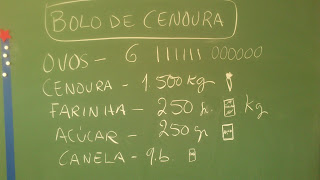 BOLO DE CENOURA
OVOS - 6 |||||| 000000
CENOURA - 1.500 kg
FARINHA - 250 kg
AÇÚCAR - 250 gr
CANELA - q.b.